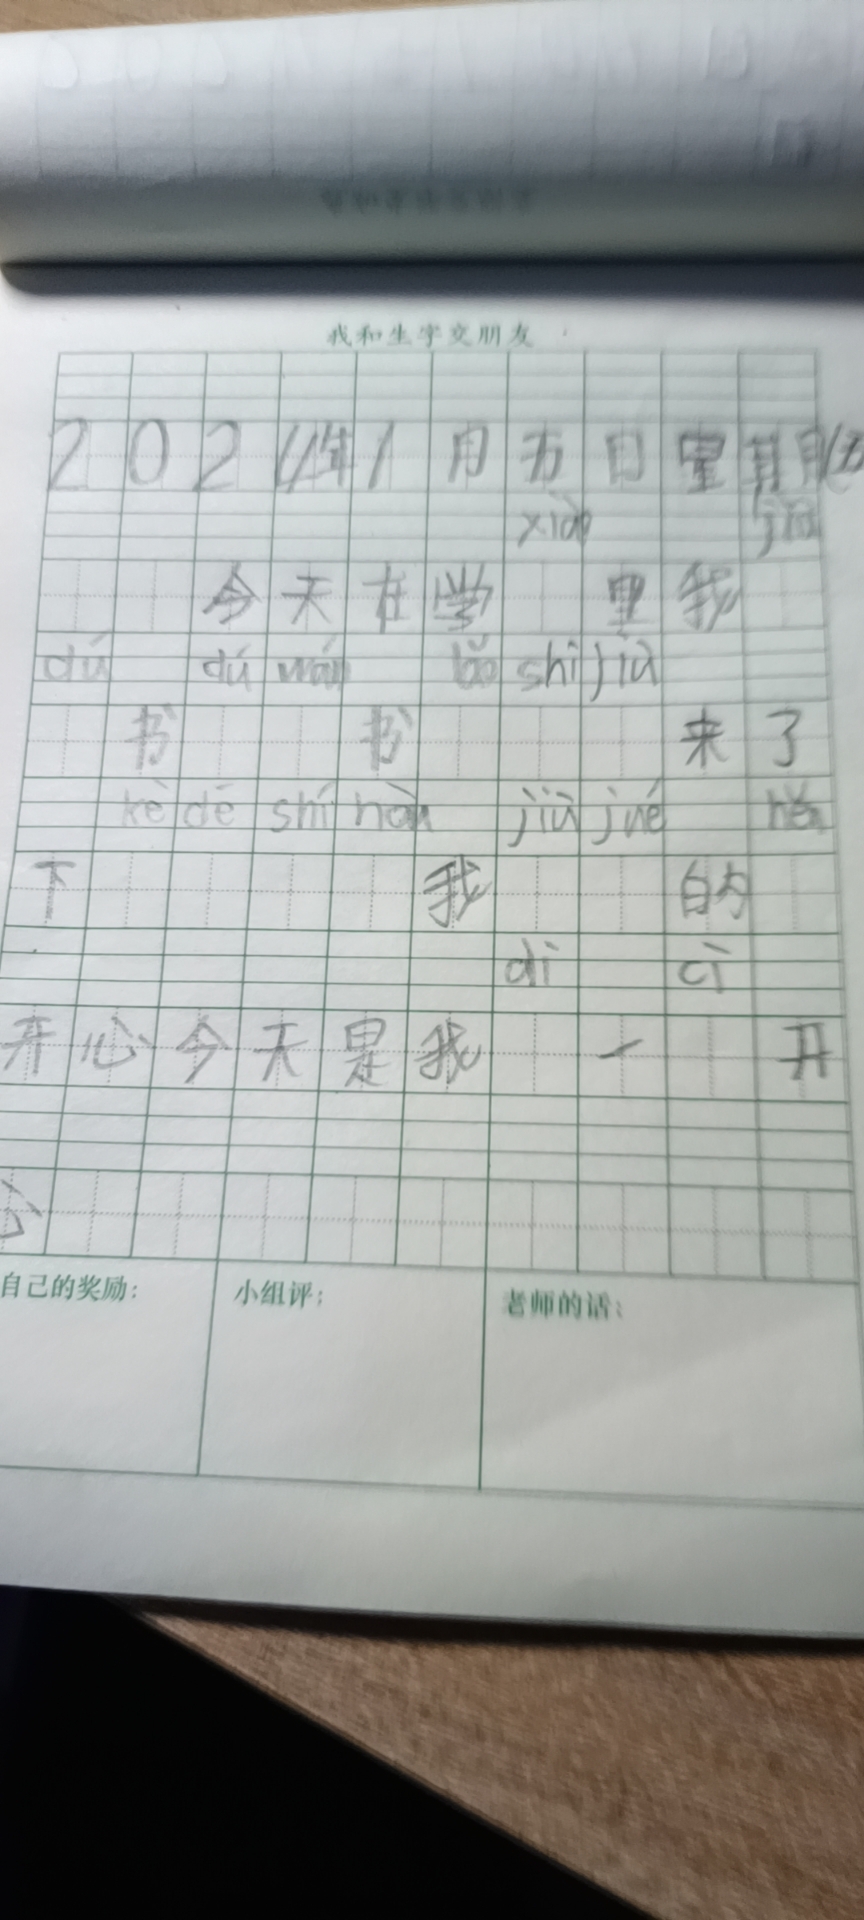 我和生字交朋友
2024年1月五日星期五
xiào jiù
今天在学里我
dú dú wán bǎo shí jiù
书书来了
kè dē shí hòu jiù jué hěn
下我的
dì cì
开心今天是我一开
心
自己的奖励: 小组评: 老师的话: